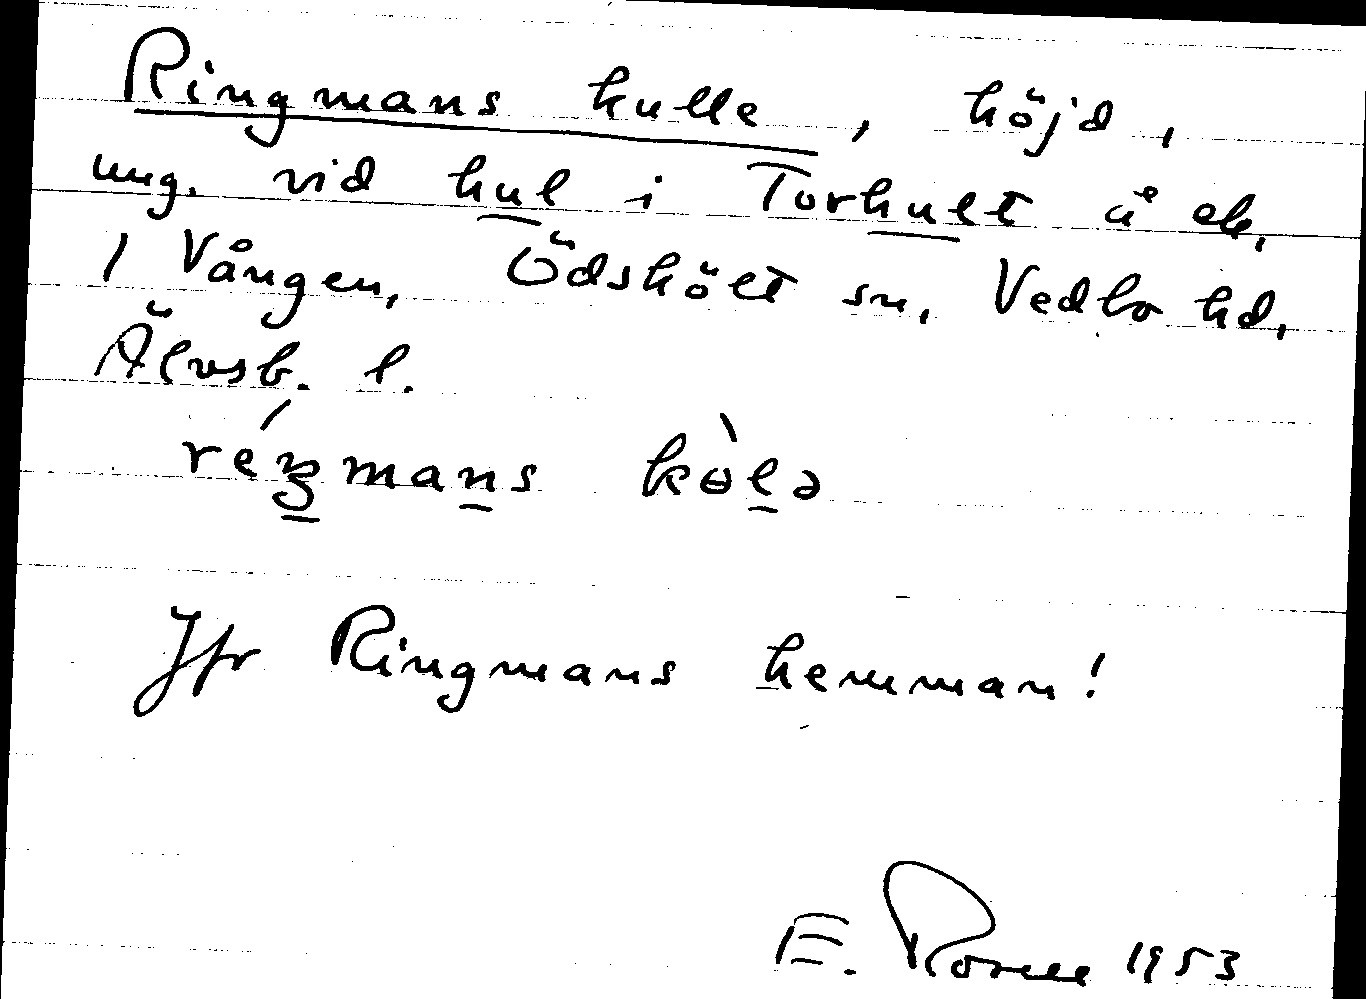 Ringmans kulle, höjd,
ung. vid hul i Torhult å ek.
1 Vången, Ödskölt sn, Vedbo hd,
Älvsb. l.
réŋmans kɵ̀lə
Jfr Ringmans hemman!
E. 1953